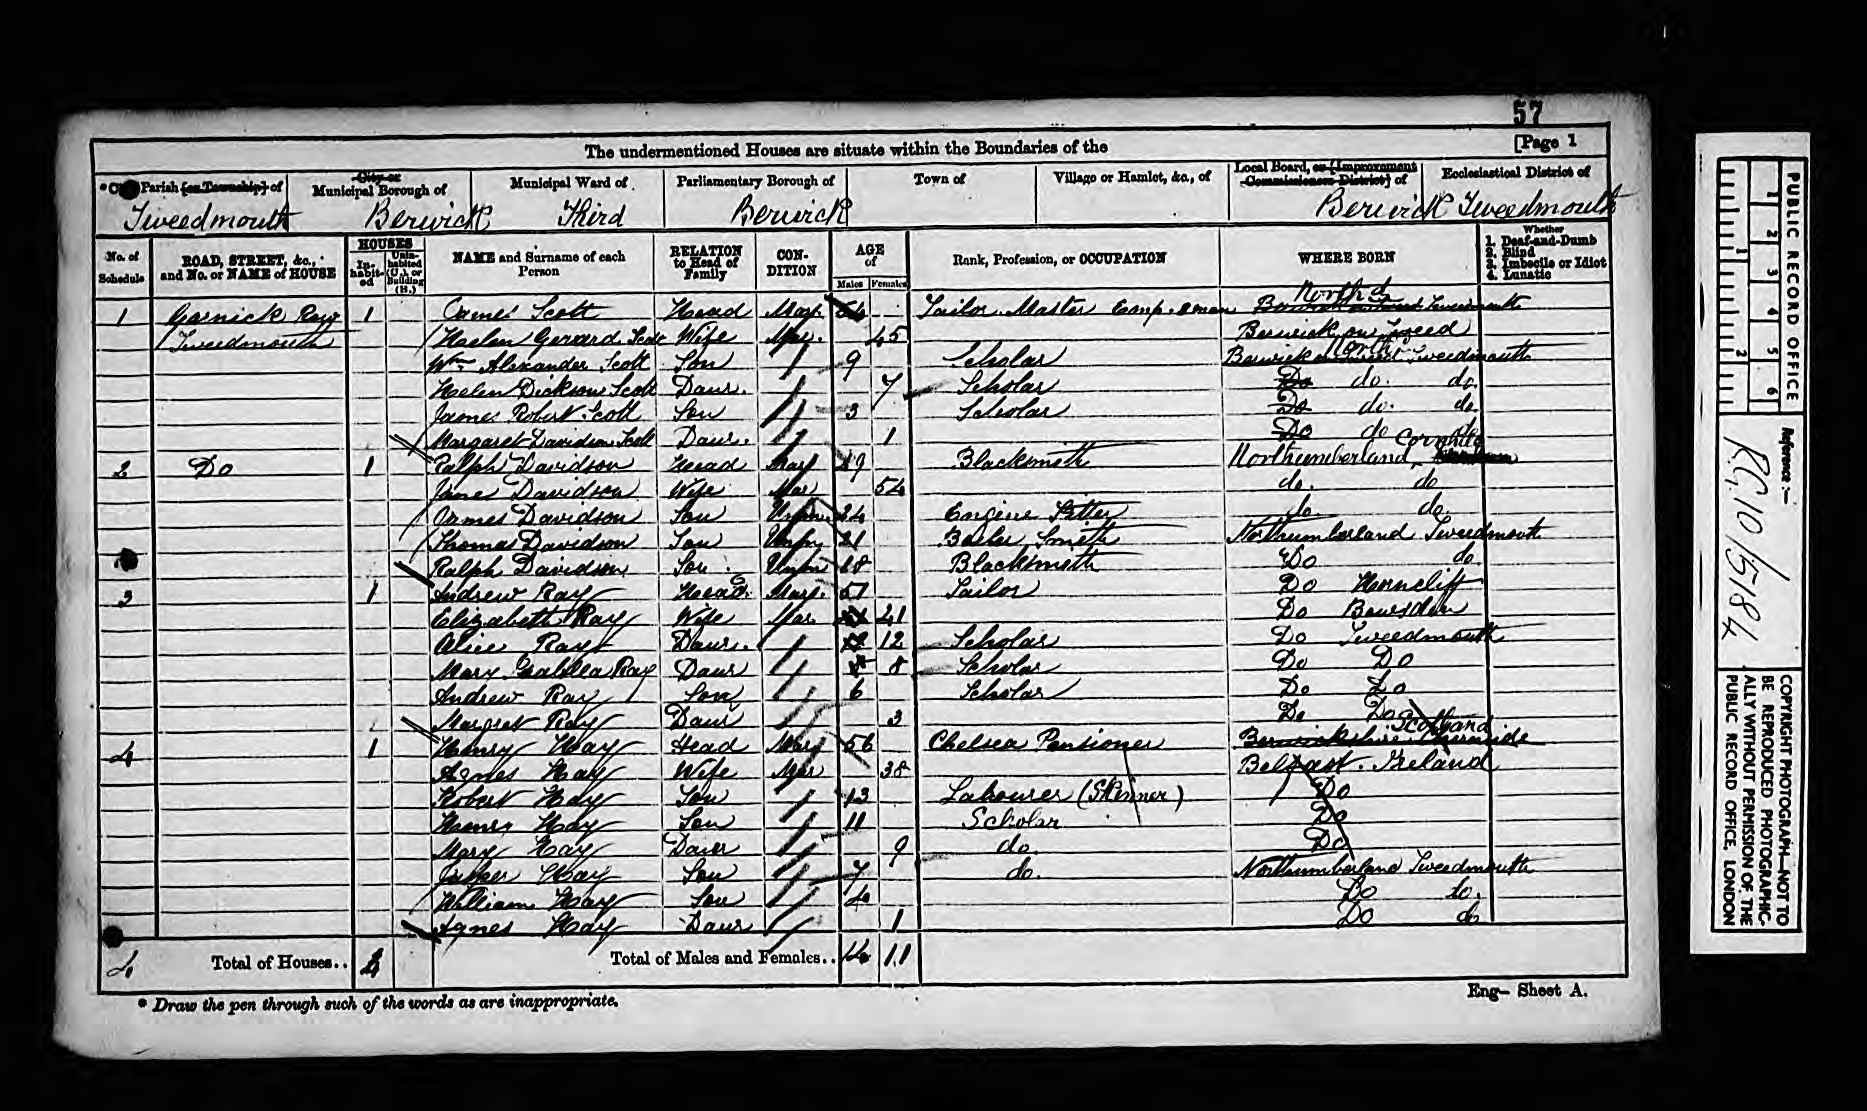 57
The undermentioned Houses are situate within the Boundaries of the [Page 1
Parish [or Township] of
City or Municipal Borough of
Municipal Ward of
Parliamentary Borough of
Town of
Village or Hamlet, &c., of
Local Board, or [Improvement Commissioners District] of
Ecclesiastical District of
Tweedmouth Berwick Third Berwick Berwick Tweedmouth
No. of Schedule
ROAD, STREET, &c., and No. or NAME of HOUSE
HOUSES
In-habit-ed
Unin-habited (U.), or Building (B.)
NAME and Surname of each Person
RELATION to Head of Family
CON-DITION
AGE of
Males Females
Rank, Profession, or OCCUPATION
WHERE BORN
Whether
1. Deaf-and-Dumb
2. Blind
3. Imbecile or Idiot
4. Lunatic
1 Row 1 James Scott Head Mar. Tailor Master North'd Tweedmouth
Tweedmouth Helen Gerard Scott Wife Mar. 45 Berwick on Tweed
Wm Alexander Scott Son 9 Scholar North'd Tweedmouth
Helen Dickson Scott Daur. 7 Scholar Do do. do.
James Robert Scott Son 3 Scholar Do do. do.
Margaret Davidson Scott Daur. 1 Do do do
2 Do 1 Ralph Davidson Head Mar 49 Blacksmith Northumberland Cornhill
Jane Davidson Wife Mar 54 do. do
James Davidson Son Unm. 24 Engine Fitter do. do.
Thomas Davidson Son Unm 21 Smith Northumberland Tweedmouth
Ralph Davidson Son Unm 18 Blacksmith Do do.
3 1 Andrew Ray Head. Mar. 51 Tailor Do Horncliff
Elizabeth Ray Wife Mar. 41 Do Bowsden
Alice Ray Daur. 12 Scholar Do Tweedmouth
Mary Isabella Ray Daur 8 Scholar Do Do
Andrew Ray Son 6 Scholar Do Do
Margret Ray Daur 3 Do Do
4 1 Henry Hay Head Mar 56 Chelsea Pentioner Berwickshire Scotland
Agnes Hay Wife Mar 38 Belfast Ireland
Robert Hay Son 13 Labourer (Skinner) Do
Henry Hay Son 11 Scholar Do
Mary Hay Daur 9 do. Do
Hay Son 7 do. Northumberland Tweedmouth
William Hay Son 4 Do do.
Agnes Hay Daur 1 Do do
4 Total of Houses.. 4 Total of Males and Females.. 14 11
* Draw the pen through such of the words as are inappropriate.
Eng- Sheet A.
PUBLIC RECORD OFFICE
1 2 3 4 5 6
1 2
Reference :—
R.G. 10/5184
COPYRIGHT PHOTOGRAPH—NOT TO BE REPRODUCED PHOTOGRAPHIC-ALLY WITHOUT PERMISSION OF THE PUBLIC RECORD OFFICE, LONDON